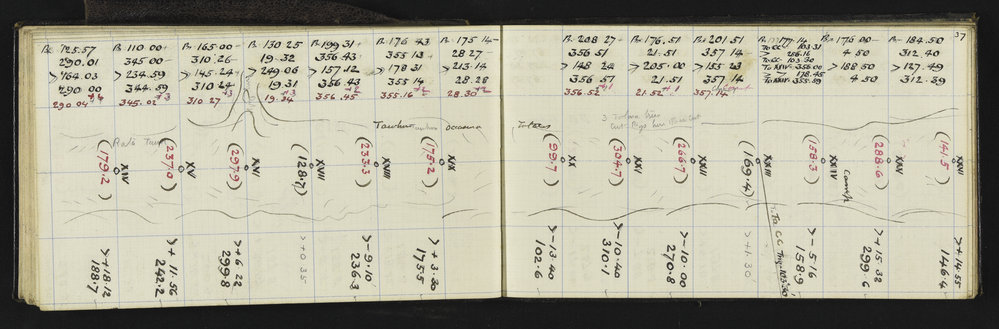 37
Bk 125.57 Bn 110 00 Bn 165 00 Bn 130 25 Bn 199 31 Bn 176 43 Bn 175 14
290.01 345 00 310.26 19.32 356.43 355.13 28 27
>164.03 >234.59 >145.24 >249.06 >157.12 >178 31 >213.14
290 00 344.59 310.24 19.31 356 43 355 14 28.28
+4 +3 +3 +3 +2 +2 +2
290.04 345.02 310 27 19.34 356.45 355.16 28.30
Bn 208 27 Bn 176.51 Bn 201 51 Bn 177.14 Bn 176 00 Bn 184.50
356 51 21.51 357 14 To CC 103.31 4 50 312 40
>148 24 >205.00 >155 23 > 256.16 >188 50 >127.49
356 51 21.51 357 14 To CC 103.30 4.50 312.39
To XXIV 356.00
> 178.45
To XXIV 355.59
356.52 21.52 357.14
3 Totara trees
Totara
XIV
(179.2)
XV
(237.0)
XVI
(297.9)
XVII
(128.7)
XVIII
(233.3)
XIX
(175.2)
XX
(99.7)
XXI
(304.7)
XXII
(266.7)
XXIII
(169.4)
XXIV
(158.3)
Camp
XXV
(288.6)
XXVI
(141.5)
>+18.12
188.7
>+11.56
242.2
>+6.22
299.8
>+0 35
>-9.10
236.3
>+3.30
175.5
>-13.40
102.6
>-10.40
310.1
>-10.00
270.8
>+1.30
To CC
>-5.16
158.9
>+15.32
299.6
>+14.55
146.4